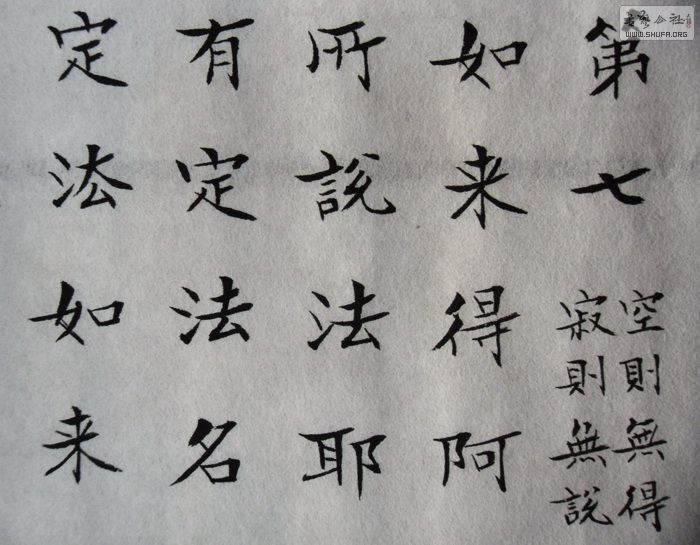 第七
空則無得
寂則無說
如来得阿
所說法耶
有定法名
定法如来
書藝公社
WWW.SHUFA.ORG